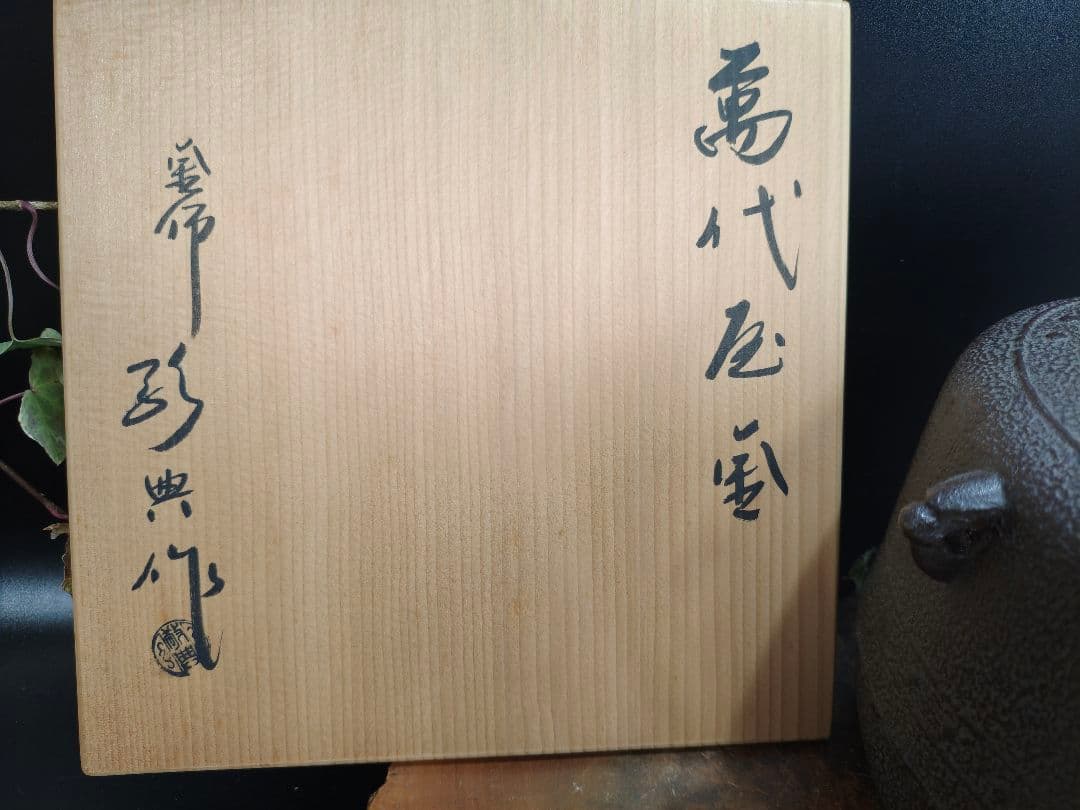 萬代屋釜
釜師 彰典作